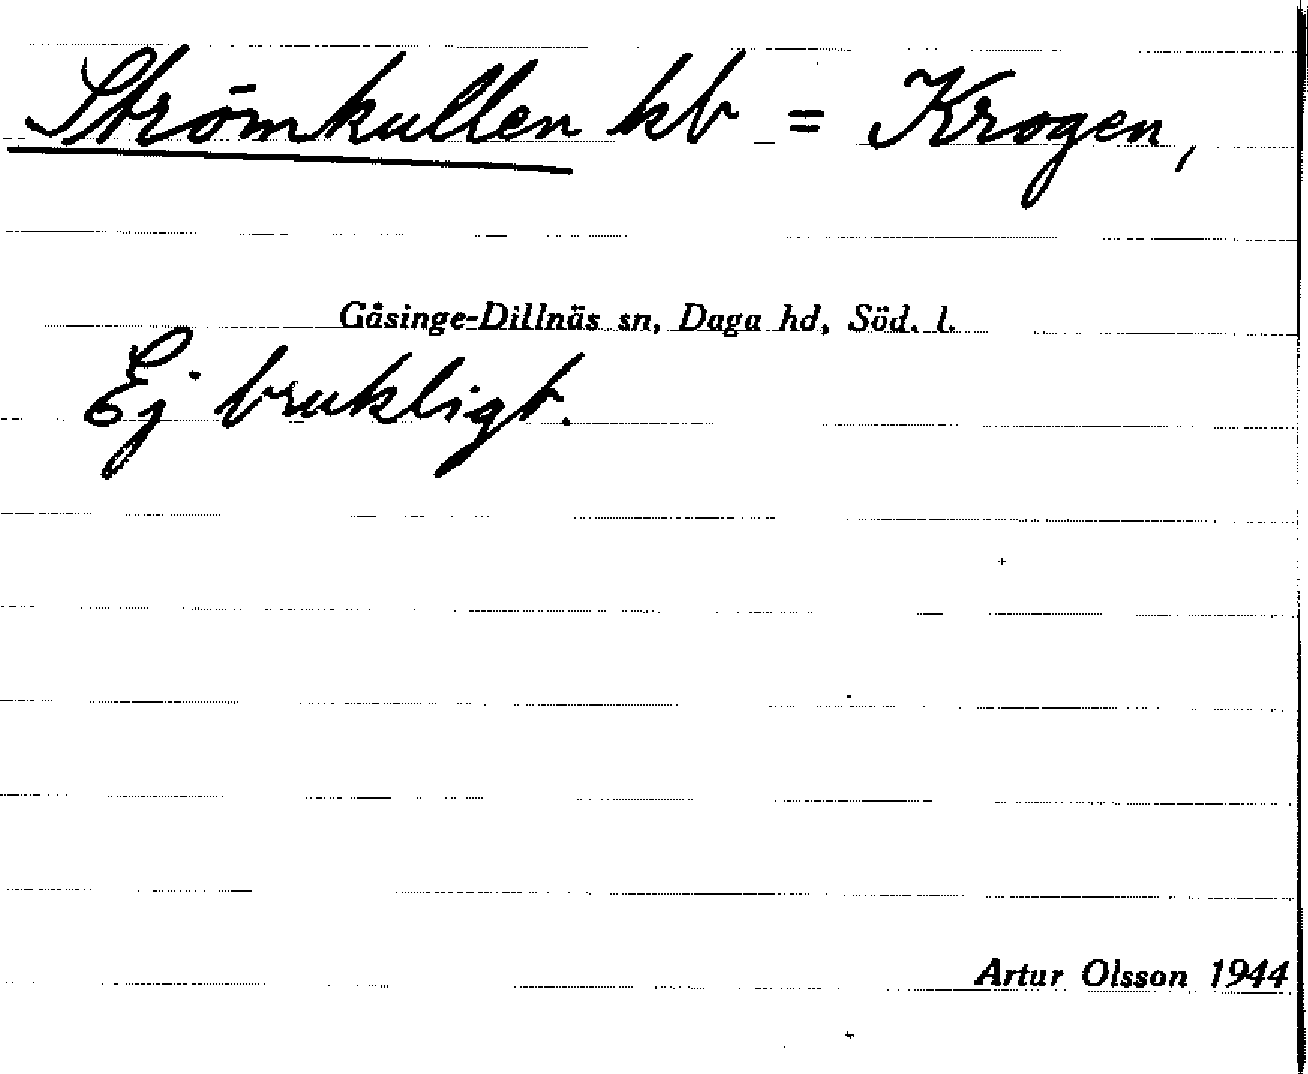 Strömkullen hb = Krogen,
Gåsinge-Dillnäs sn, Daga hd, Söd. l.
Ej brukligt.
Artur Olsson 1944